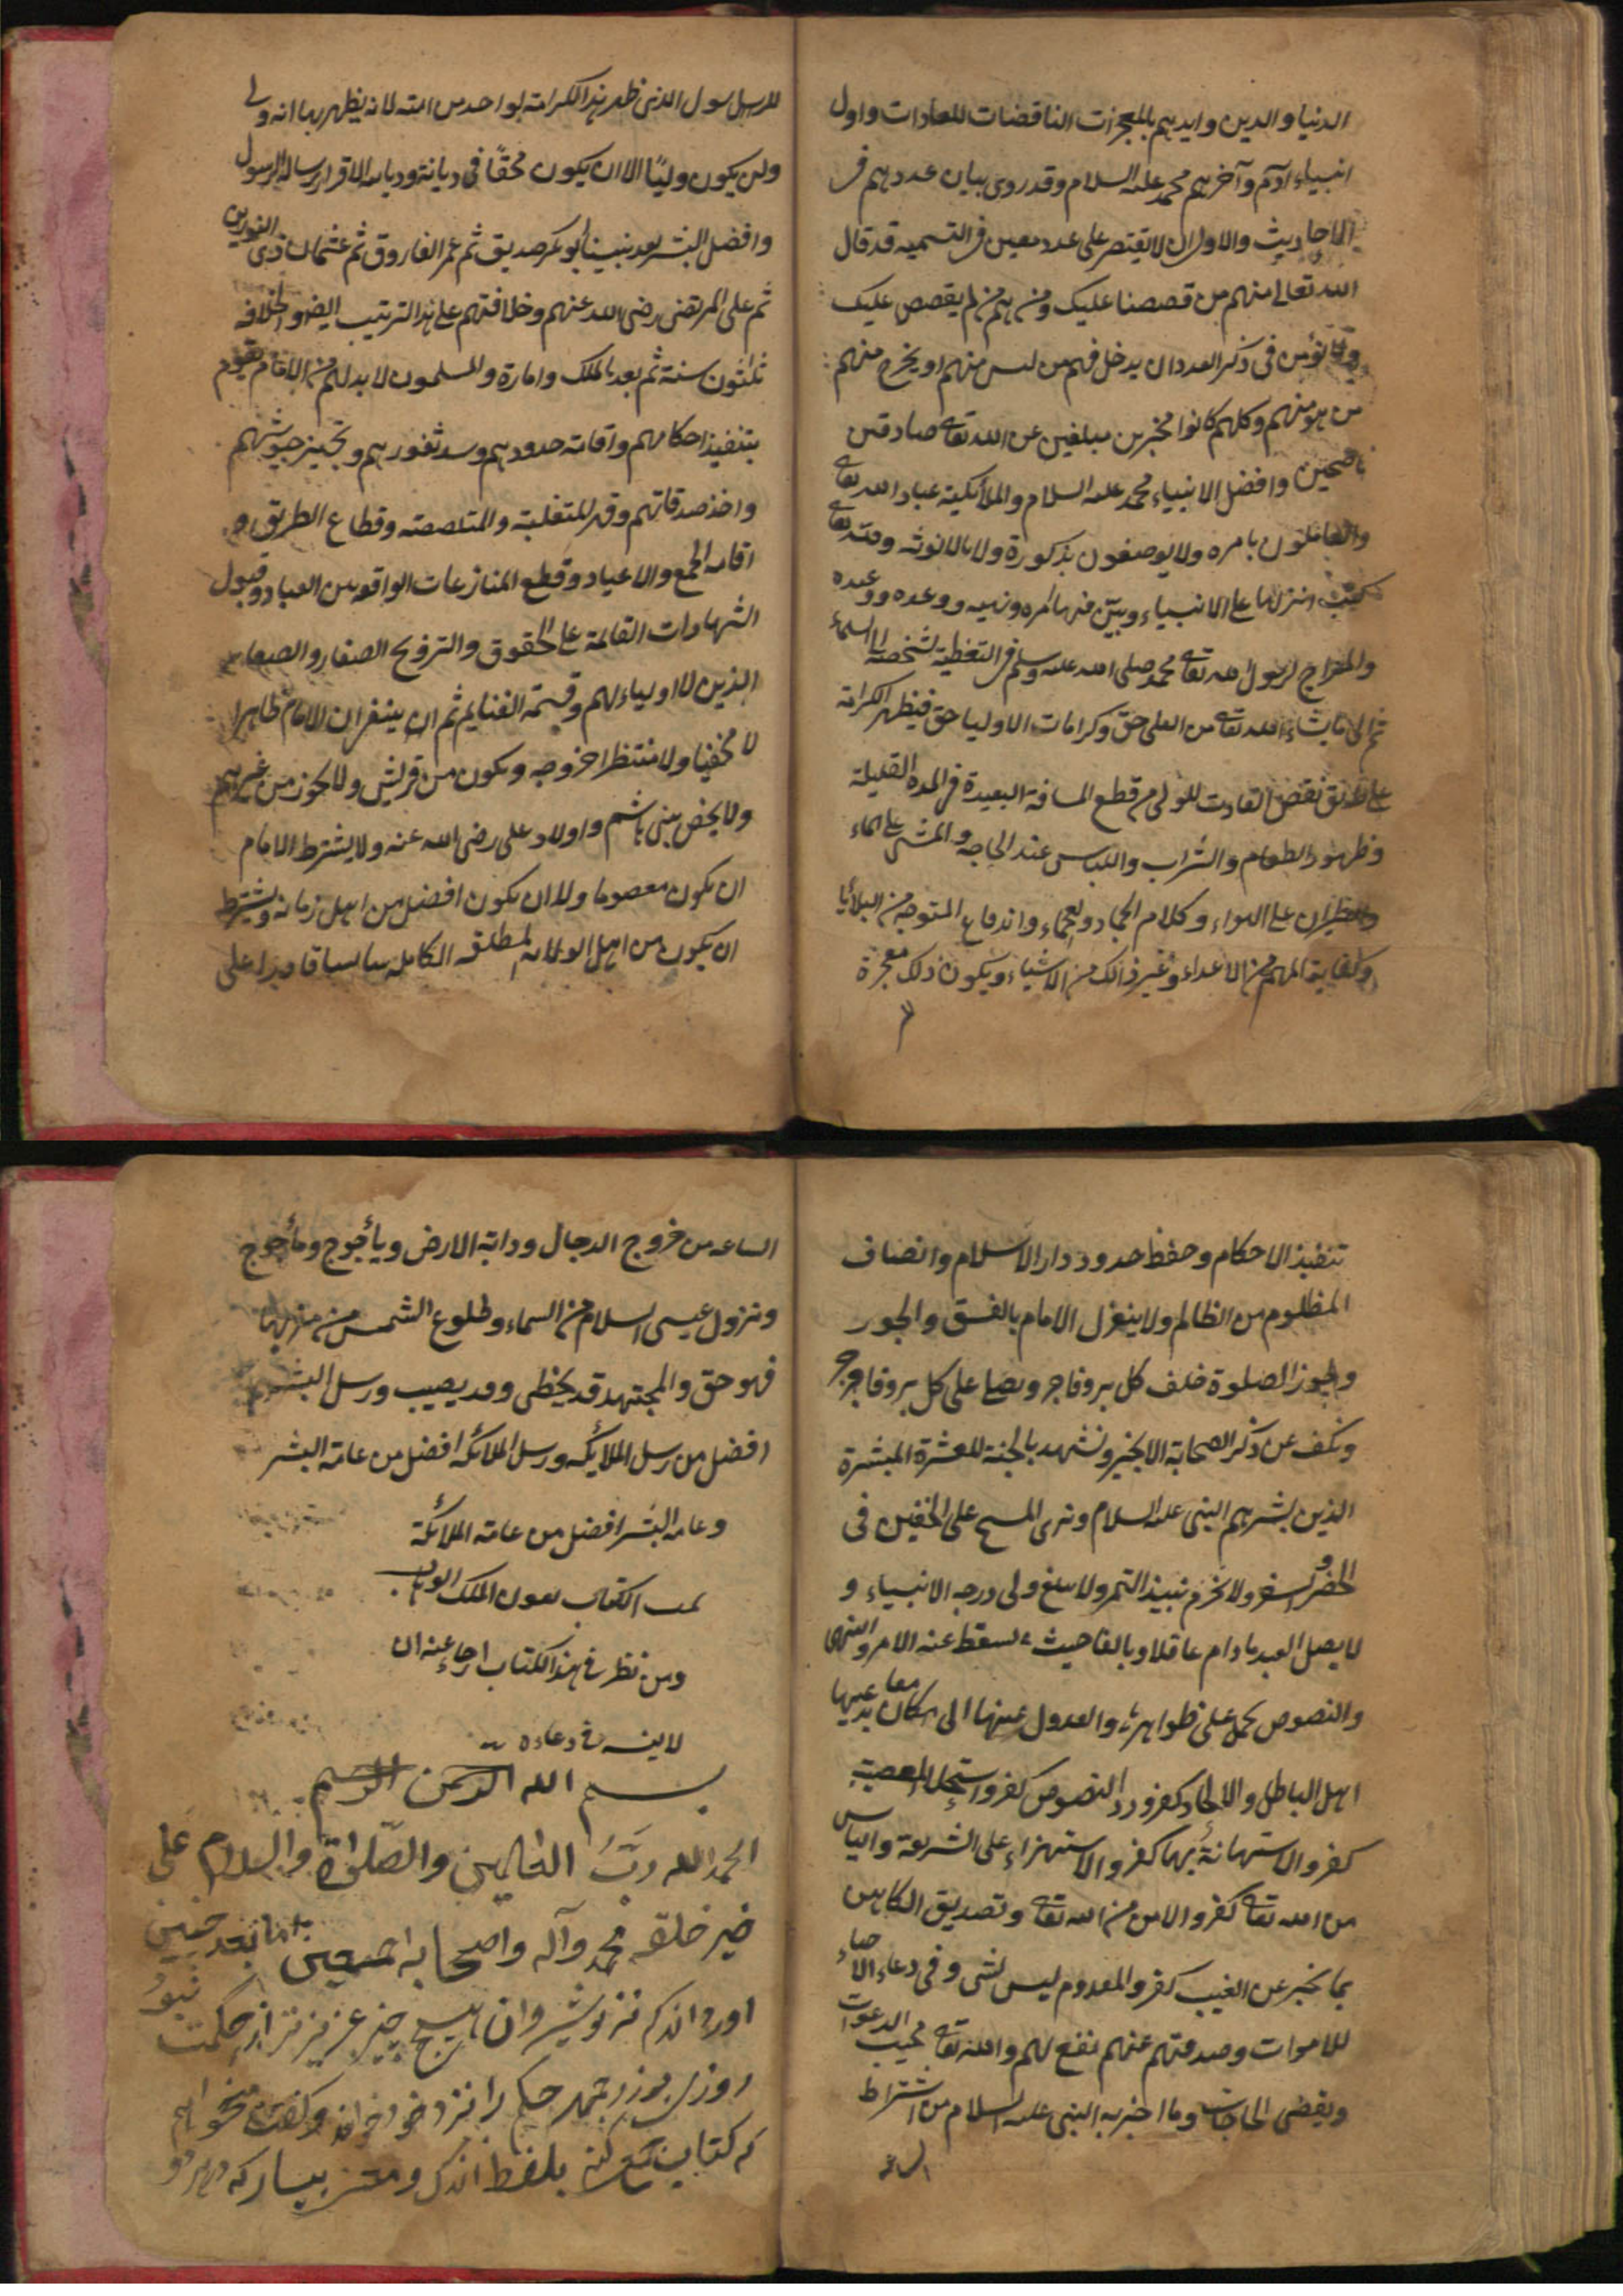 الدنيا والدين وايدهم بالمعجزات الناقضات للعادات واول
انبياء آدم وآخرهم محمد علیہ السلام وقد روى بيان عددهم فى
الاحاديث والاولى ان لا يقتصر على عدد معين فى التسميه قد قال
الله تعالى منهم من قصصنا عليك ومنهم من لم يقصص عليك
ولا يؤمن فى ذكر العدد ان يدخل فهم من ليس منهم او يخرج منهم
من هو منهم وكلهم كانوا مخبرين مبلغين عن الله تعالى صادقين
ناصحين وافضل الانبياء محمد عليه السلام والملائكة عباد الله تعالى
والعاملون بامره ولا يوصفون بذكورة ولا بالانوثه ولله تعالى
كتب انزلها على الانبياء وبين فيها امره ونهيه ووعده ووعيده
والمعراج لرسول الله تعالى محمد صلى الله عليه وسلم فى اليقظة بشخصه الى السماء
ثم الى ما يشاء الله تعالى من العلى حق وكرامات الاوليا حق فيظهر الكرامة
على طريق نقض العادت للولى من قطع المسافة البعيدة فى المدة القليلة
وظهور الطعام والشراب واللباس عند الحاجه والمشى على الماء
والطيران على الهواء وكلام الجماد والعجماء واندفاع المتوجه من البلايا
وكفاية المهم من الاعداء وغير ذالك من الاشياء ويكون ذلك معجزة
للرسول الذى ظهر هذا الكرامة لواحد من امته لانه يظهر بها انه ولى
ولن يكون وليًا الا ان يكون محقًا فى ديانته وديانته الاقرار برسالة الرسول
وافضل البشر بعد نبينا أبو بكر صديق ثم عمر الفاروق ثم عثمان ذى النورين
ثم على المرتضى رضى الله عنهم وخلافتهم على هذا الترتيب ايضا والخلافه
ثلثون سنة ثم بعد الملك وامارة والمسلمون لا بد لهم من الامام يقوم
بتنفيذ احكامهم واقامة حدودهم وسد ثغورهم وتجهيز جيوشهم
واخذ صدقاتهم وقهر المتغلبة والمتلصصة وقطاع الطريق و
اقامه الجمع والاعياد وقطع المنازعات الواقعه بين العباد وقبول
الشهادات القائمة على الحقوق والترويح الصغار والصغائر
الذين لا اولياء لهم وقسمة الغنايم ثم ان ينبغى ان الامام ظاهرا
لا مخفيا ولا منتظرا خروجه ويكون من قريش ولا يجوز من غيرهم
ولا يخص ببنى هاشم واولاد على رضى الله عنه ولا يشترط الامام
ان يكون معصوما ولا ان يكون افضل من اهل زمانه ويشترط
ان يكون من اهل الولاية المطلقه الكامله سائسا قادرا على
تنفيذ الاحكام وحفظ حدود دار الاسلام وانصاف
المظلوم من الظالم ولا ينعزل الامام بالفسق والجور
ويجوز الصلوة خلف كل بر وفاجر ويصلى على كل بر وفاجر
ونكف عن ذكر الصحابة الا بخير ونشهد بالجنة للعشرة المبشرة
الذين بشرهم النبى عليه السلام ونرى المسح على الخفين فى
الحضر والسفر ولا نحرم نبيذ التمر ولا يبلغ ولى درجه الانبياء و
لا يصل العبد ما دام عاقلا وبالغا حيث يسقط عنه الامر والنهى
والنصوص يحمل على ظواهرها والعدول عنها الى معان يدعيها
اهل الباطل والالحاد كفر ورد النصوص كفر واستحلال المعصية
كفر والاستهانة بها كفر والاستهزاء على الشريعة والياس
من الله تعالى كفر والامن من الله تعالى وتصديق الكاهن
بما يخبر عن الغيب كفر والمعدوم ليس بشى وفى دعاء الاحياء
للاموات وصدقتهم عنهم نفع لهم والله تعالى مجيب الدعوات
ويقضى الحاجات وما اخبر به النبى عليه السلام من اشتراط
الساعة
الساعه من خروج الدجال ودابة الارض ويأجوج ومأجوج
ونزول عيسى السلام من السماء وطلوع الشمس من مغربها
فهو حق والمجتهد قد يخطى وقد يصيب ورسل البشر
افضل من رسل الملائكه ورسل الملائكه افضل من عامة البشر
وعامه البشر افضل من عامة الملائكة
تمت الكتاب بعون الملك الوهاب
ومن نظر فى هذا الكتاب ارجاء عنه ان
لا ينسه فى دعاءه
بسم الله الرحمن الرحيم
الحمد الله ربّ العالمين والصّلواة والسلام على
خير خلقه محمد وآله واصحابه اجمعين اما بعد چنين
اورده اندكه نزد نوشيروان هيچ چيز عزيزتر از حكمت نبود
روزى بوزرجمهر حكيم را نزد خود خواند وگفت ميخواهم
كه كتابى جمع كنى بلفظ اندك ومعنى بسيار كه در هر دو